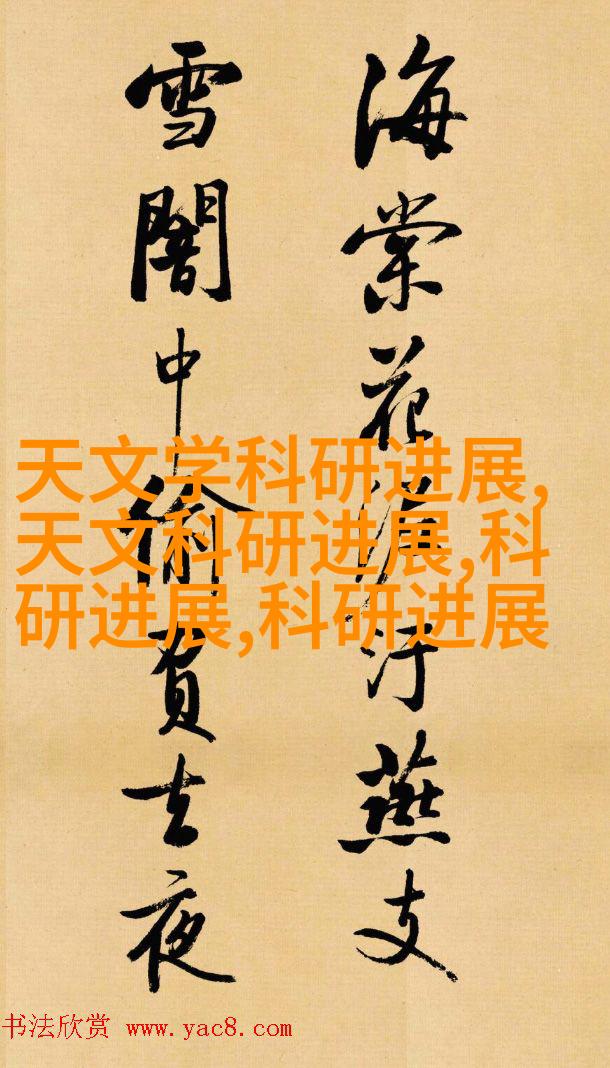 海棠花泥汙燕支
雪闇中偷負去夜
天文学科研进展,
天文科研进展,科
研进展,科研进展
书法欣赏 www.yac8.com